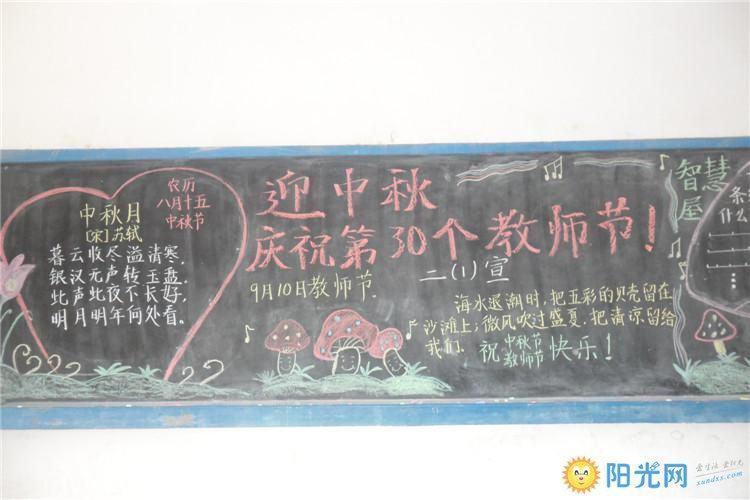 农历
八月十五
中秋节
中秋月
[宋]苏轼
暮云收尽溢清寒.
银汉无声转玉盘.
此声此夜不长好,
明月明年何处看。
迎中秋
庆祝第30个教师节!
二(1)宣
9月10日教师节.
海水退潮时,把五彩的贝壳留在
沙滩上;微风吹过盛夏.把清凉留给
我们.祝中秋节教师节快乐!
智慧
屋
条
什么
阳光网
爱生活 爱阳光
sundxs.com